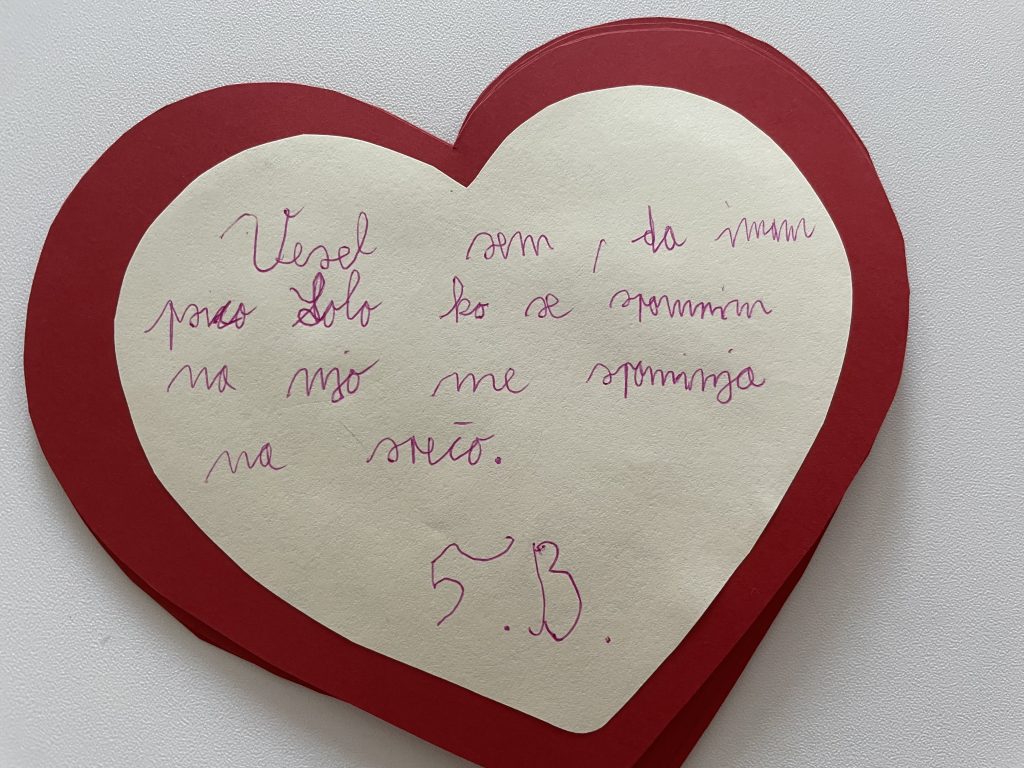 Vesel sem, da imam
psico Lolo ko se spominim
na njo me spominja
na srečo.
5.B.